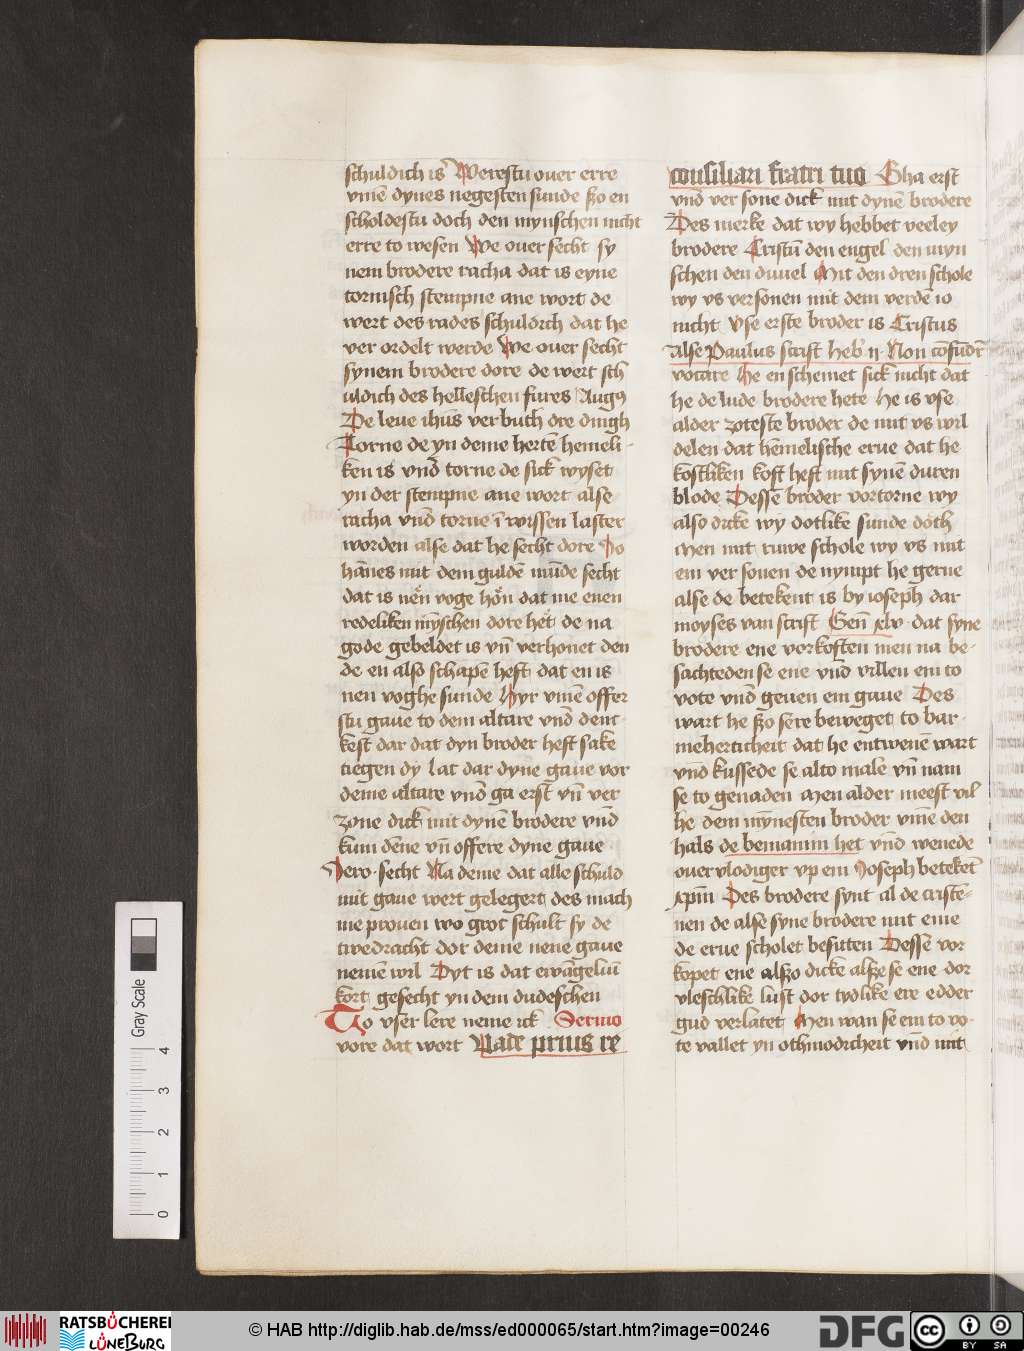 schuldich is Werestu ouer erre
vmē dynes negesten sunde ßo en
scholdestu doch den mynschen nicht
erre to wesen We ouer secht sy
nem brodere racha dat is eyne
tornisch stempne ane wort de
wert des rades schuldich dat he
ver ordelt werde We ouer secht
synem brodere dore de wert sch
uldich des helleschen fures Augꝰ
De leue ihūs ver buth dre dingh
Torne de yn deme hertē hemeli-
ken is vnd torne de sick wyset
yn der stempne ane wort alse
racha vnd torne ī wissen laster
worden alse dat he secht dore Jo
hānes mit dem guldē mūde secht
dat is nen voge hon dat me enen
redeliken mȳschen dore het de na
gode gebeldet is vn̄ verhonet den
de en also schapē heft dat en is
nen voghe sunde Hyr vmē offer
stu gaue to dem altare vnd denc-
kest dar dat dyn broder heft sake
tiegen dy Lat dar dyne gaue vor
deme altare vnd ga erst vn̄ ver
zone dick mit dynē brodere vnd
kum dēne vn̄ offere dyne gaue
Jero secht Na deme dat alle schuld
mit gaue wert gelegert des mach
me prouen wo grot schult sy de
twedracht dor deme nene gaue
nemē wil Dyt is dat ewāgeliū
kort gesecht yn dem dudeschen
To vser lere neme ick Sermo
vore dat wort Vade prius re
consiliari fratri tuo Gha erst
vnd ver sone dick mit dynē brodere
Des merke dat wy hebbet veeley
brodere Cristū den engel den myn
schen den duuel Mit den dren schole
wy vs versonen mit dem verdē io
nicht Vse erste broder is Cristus
alse Paulus scrift heb ij Non cōfūdit
vocare He en schemet sick nicht dat
he de lude brodere hete He is vse
alder zoteste broder de mit vs wil
delen dat hēmelische erue dat he
kostliken kost heft mit synē duren
blode Dessē broder vortorne wy
also dicke wy dotlike sunde doth
Men mit ruwe schole wy vs mit
em ver sonen de nympt he gerne
alse de betekent is by ioseph dar
moyses van scrift Gen̄ xlv dat syne
brodere ene vorkoften men na be-
sachteden se ene vnd villen em to
vote vnd geuen em gaue Des
wart he ßo sere beweget to bar-
meherticheit dat he entwenē wart
vnd kussede se alto male vn̄ nam
se to genaden Men alder meest vil
he dem mȳnesten broder vmē den
hals de beniamin het vnd wenede
ouer vlodiger vp em Joseph beteket
xpm̄ Des brodere synt al de cristē-
nen de alse syne brodere mit eme
de erue scholet besitten Dessē vor
kopet ene alßo dicke alße se ene dor
vleschlike lust dor tydlike ere edder
gud verlatet Men wan se em to vo-
te vallet yn othmodicheit vnd mit
Gray Scale
4
3
2
1
0
RATSBÜCHEREI
LÜNEBURG
© HAB http://diglib.hab.de/mss/ed000065/start.htm?image=00246
DFG
cc
BY SA